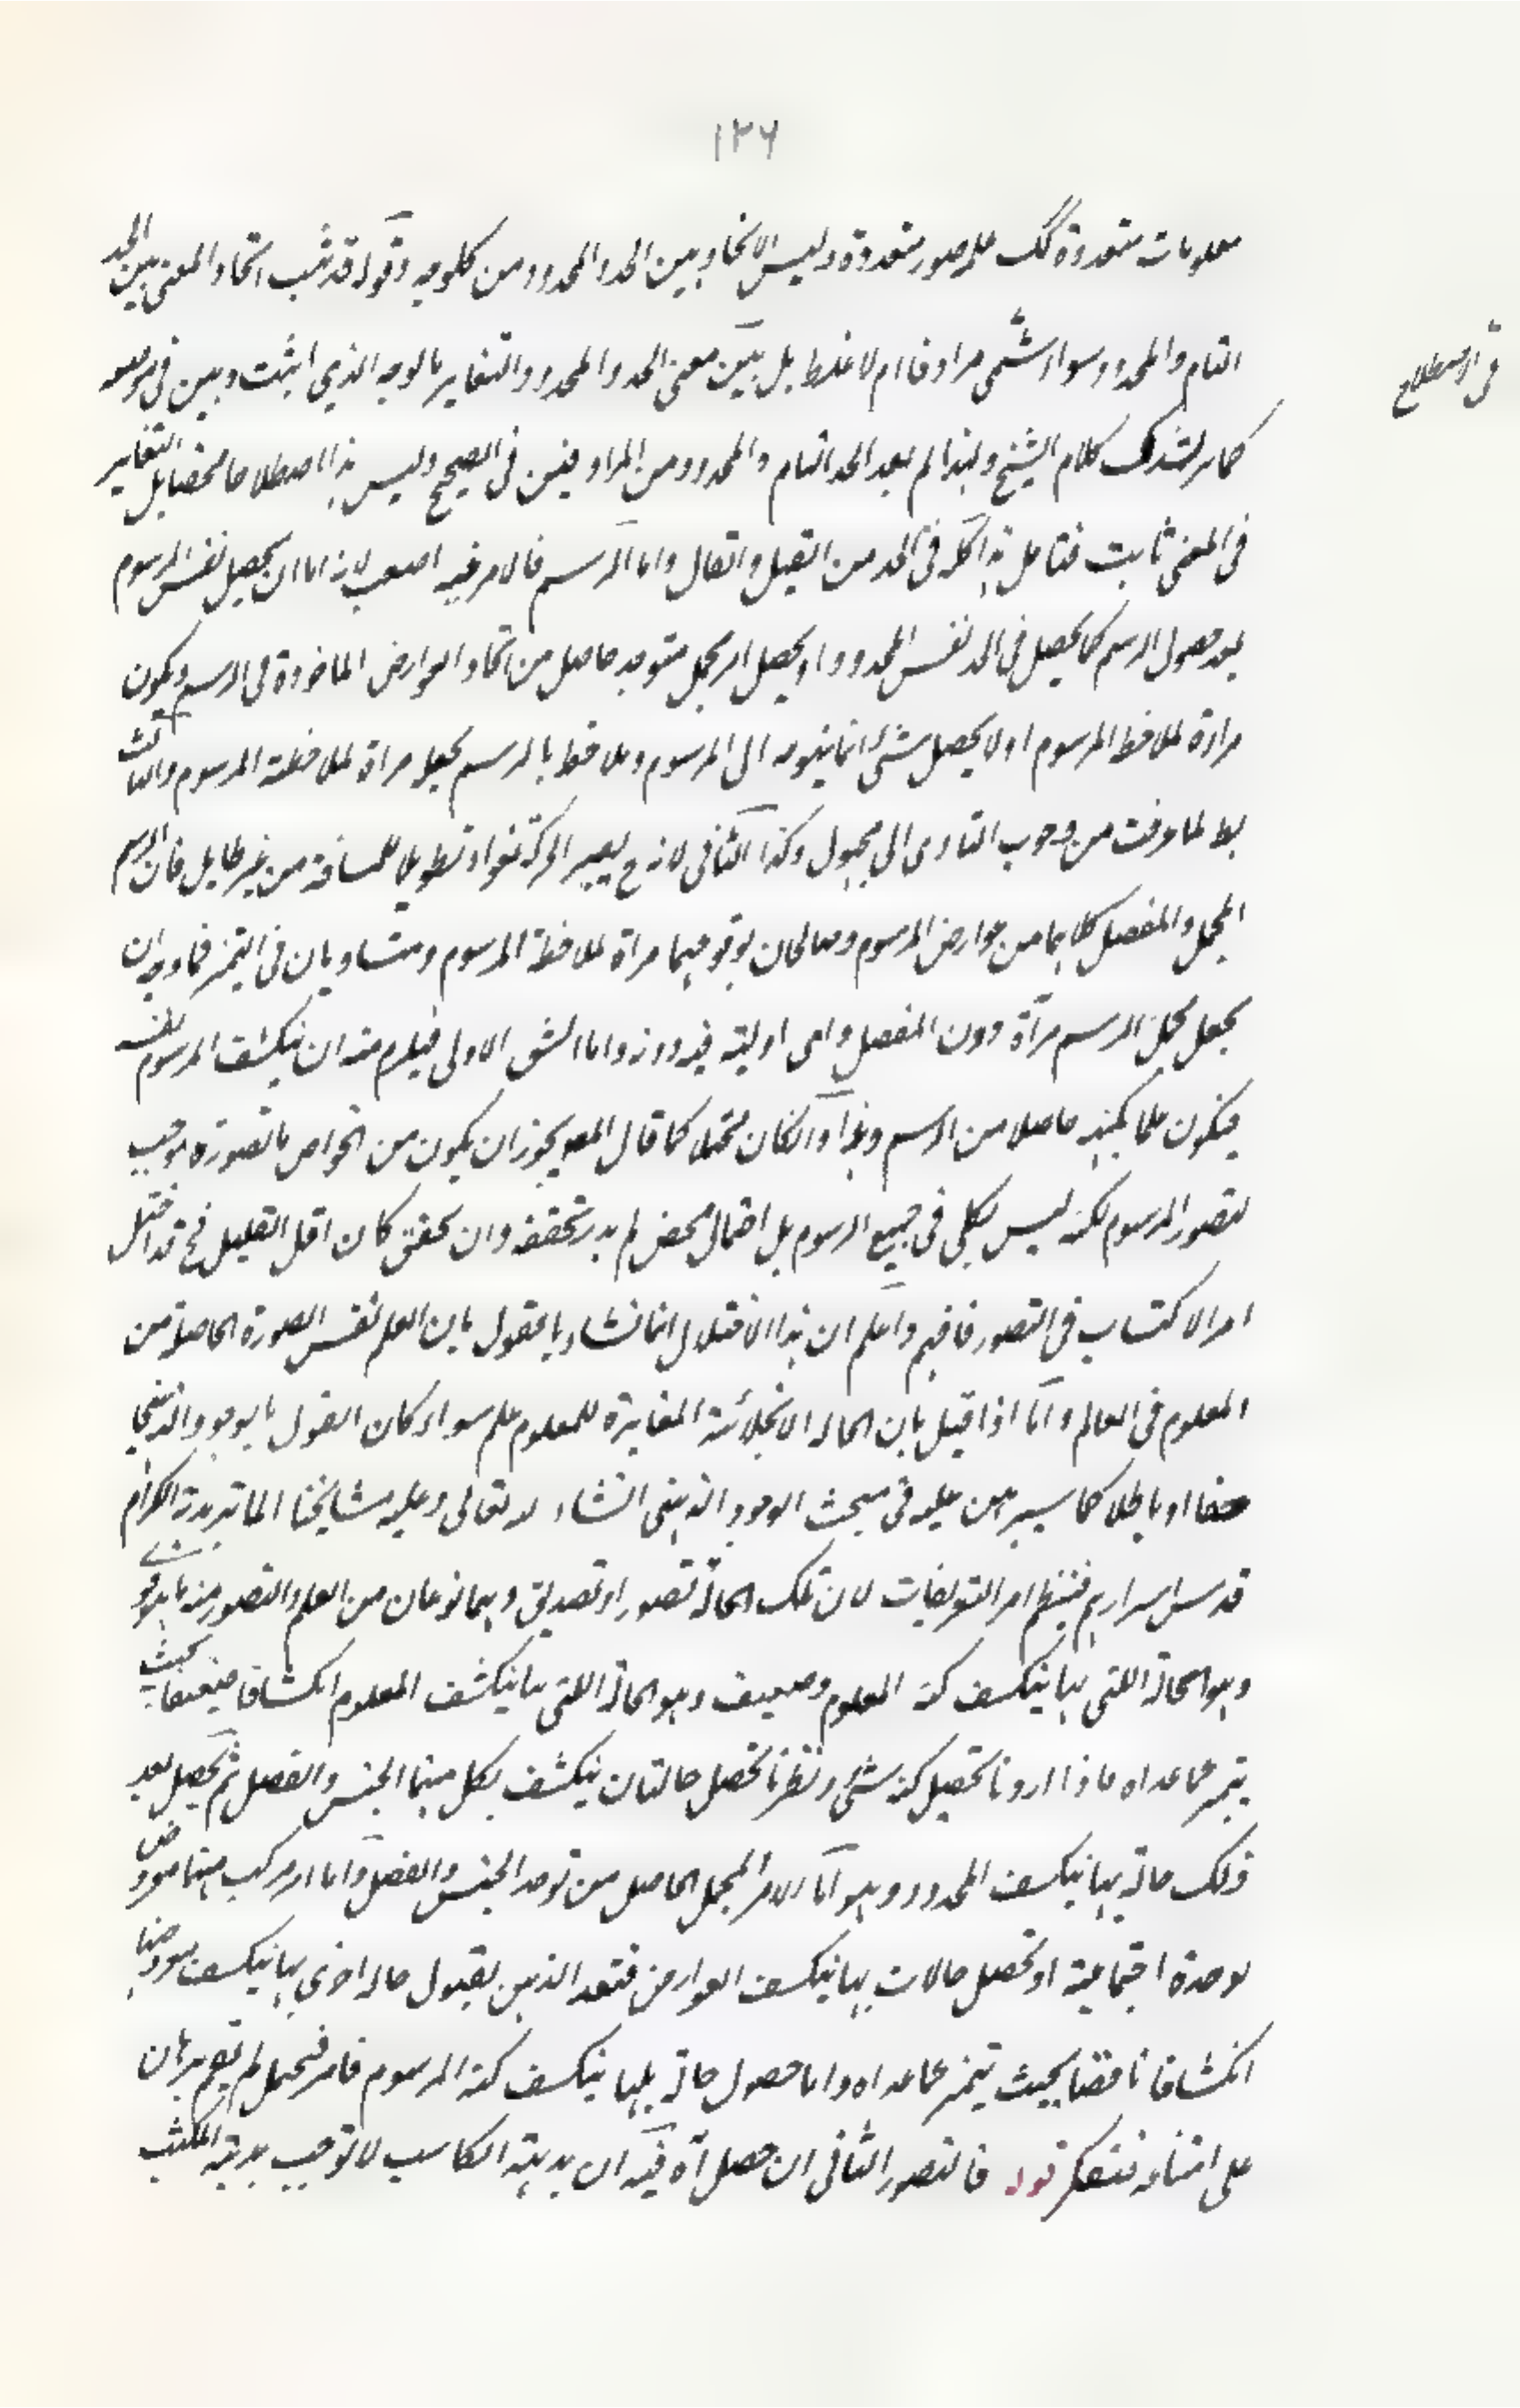 ١٣٦
معلومات متعددة كك على صور متعددة وليس الاتحاد بين الحد والمحدود من كل وجه وقوله قد ثبت اتحاد المعنى بين الحد
التام والمحدود سواء سمى مرادفا ام لا غلط بل بين معنى الحد والمحدود التغاير بالوجه الذي اثبت وبين فى موضعه
فى الاصطلاح
كما يرشدك كلام الشيخ ولهذا لم يعد الحد التام والمحدود من المرادفين فى الصحيح وليس هذا اصطلاحا محضا بل التغاير
فى المعنى ثابت فتامل هذا كله فى الحد من القيل والقال واما الرسم فالامر فيه اصعب لانه اما ان يحصل نفس المرسوم
بعد حصول الرسم كما يحصل فى الحد نفس المحدود او يحصل امر مجمل متوحد حاصل من اتحاد العوارض الماخوذة فى الرسم ويكون
مراة لملاحظة المرسوم او لا يحصل شئ انما يتوجه الى المرسوم وملاحظ بالرسم بجعله مراة لملاحظة المرسوم والثالث
بط لما عرفت من وجوب التادى الى مجهول وكذا الثانى لانه ح يصير الحركة لغوا وتطويلا للمسافة من غير طايل فان الرسم
المجمل والمفصل كلاهما من عوارض المرسوم وصالحان لوقوعهما مراة لملاحظة المرسوم ومتساويان فى التميز فما وجه ان
يجعل مجمل الرسم مرآة دون المفصل واى اولية فيه دونه واما الشق الاولى فيلزم منه ان ينكشف المرسوم بنفسه
فيكون علما بكنهه حاصلا من الرسم وهذا وان كان محتملا كما قال المص يجوز ان يكون من الخواص ما تصوره يوجب
لتصور المرسوم لكنه ليس بكلى فى جميع الرسوم بل احتمال محض لم يدر تحققه وان تحقق كان اقل القليل فح قد اختل
امر الاكتساب فى التصور فافهم واعلم ان هذا الاختلال انما نشاء بالقول بان العلم نفس الصورة الحاصلة من
المعلوم فى العالم واما اذا قيل بان الحالة الانجلائية المغايرة للمعلوم علم سواء كان القول بالوجود الذهنى
حقا او باطلا كما سيبرهن عليه فى مبحث الوجود الذهنى انشاء الله تعالى وعليه مشايخنا الماتريدية الكرام
قدس اسرارهم فينتظم امر التعريفات لان تلك الحالة تصور او تصديق وهما نوعان من العلم والتصور منه ما هو قوى
وهو الحالة اللتى بها ينكشف كنه المعلوم وضعيف وهو الحالة اللتى بها ينكشف المعلوم انكشافا ضعيفا بحيث
يتميز عما عداه فاذا اردنا تحصيل كنه شئ ونظرنا تحصل حالتان ينكشف بكل منهما الجنس والفصل ثم يحصل بعد
ذلك حالة بها ينكشف المحدود وهو اما الامر المجمل الحاصل من توحد الجنس والفصل واما امر مركب منهما معروض
لوحدة اجتماعية او تحصل حالات بها ينكشف العوارض فتعد الذهن لقبول حالة اخرى بها ينكشف معروضها
انكشافا ناقصا بحيث يتميز عما عداه واما حصول حالة بها ينكشف كنه المرسوم فامر محتمل لم يقم برهان
على امتناعه فتفكر قوله فالتصور الثانى ان حصل آه فيه ان بديهة الكاسب لا توجب بديهة المكتسب